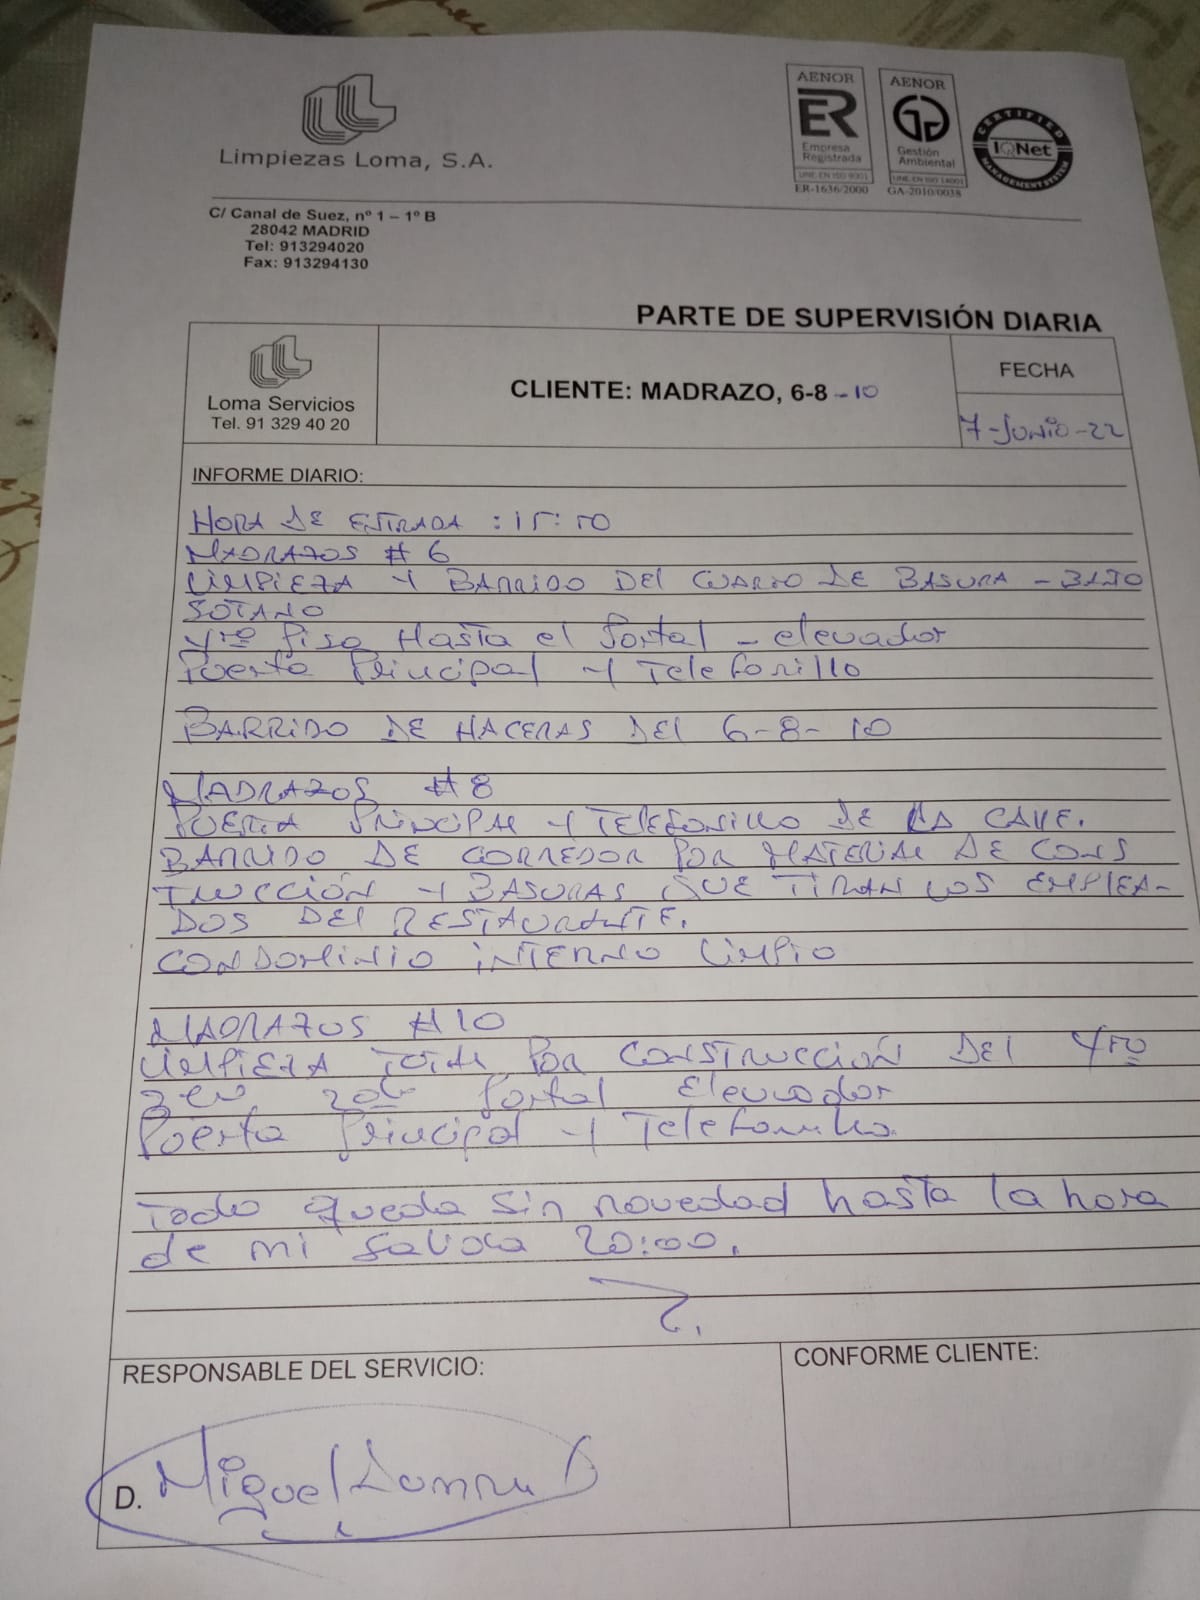 Limpiezas Loma, S.A.
AENOR
ER
Empresa
Registrada
UNE-EN ISO 9001
ER-1636/2000
AENOR
Gestión
Ambiental
UNE-EN ISO 14001
GA-2010/0038
CERTIFIED
IQNet
MANAGEMENT SYSTEM
C/ Canal de Suez, nº 1 – 1º B
28042 MADRID
Tel: 913294020
Fax: 913294130
PARTE DE SUPERVISIÓN DIARIA
Loma Servicios
Tel. 91 329 40 20
CLIENTE: MADRAZO, 6-8 -10
FECHA
7-JUNIO-22
INFORME DIARIO:
HORA DE ENTRADA :
MADRAZOS # 6
LIMPIEZA Y BARRIDO DEL CUARTO DE BASURA - BAJO
SOTANO
4rto Piso Hasta el Portal - elevador
Puerta Principal Y Telefonillo
BARRIDO DE HACERAS DEL 6-8-10
MADRAZOS #8
PUERTA PRINCIPAL Y TELEFONILLO DE LA CALLE.
BARRIDO DE CORREDOR POR MATERIAL DE CONS
TRUCCIÓN Y BASURAS QUE TIRAN LOS EMPLEA-
DOS DEL RESTAURANTE.
CONDOMINIO INTERNO LIMPIO
MADRAZOS #10
LIMPIEZA TOTAL POR CONSTRUCCIÓN DEL 4rto
3er 2do Portal Elevador
Puerta Principal Y Telefonillo
Todo queda sin novedad hasta la hora
de mi salida 20:00.
RESPONSABLE DEL SERVICIO:
CONFORME CLIENTE:
D. Miguel